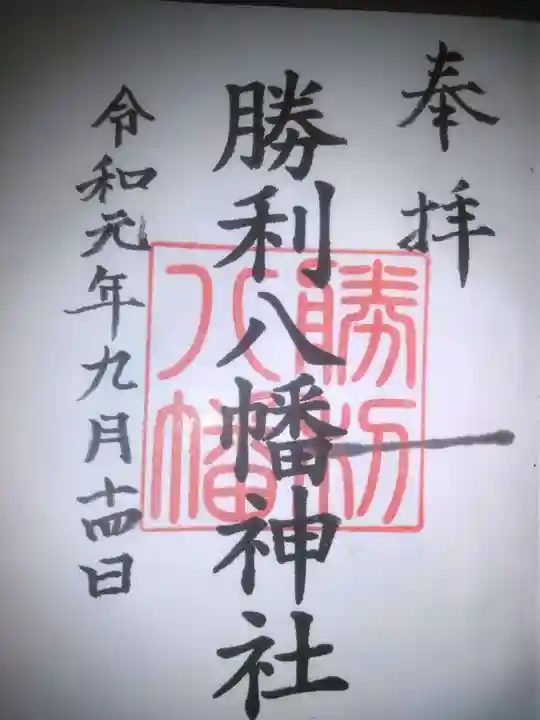 奉拝
勝利八幡神社
勝利
八幡
令和元年九月十四日